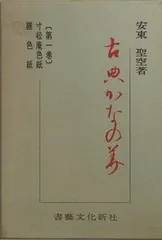 安東聖空著
古典かなの美
〔第一巻〕
寸松庵色紙
継色紙
書藝文化新社